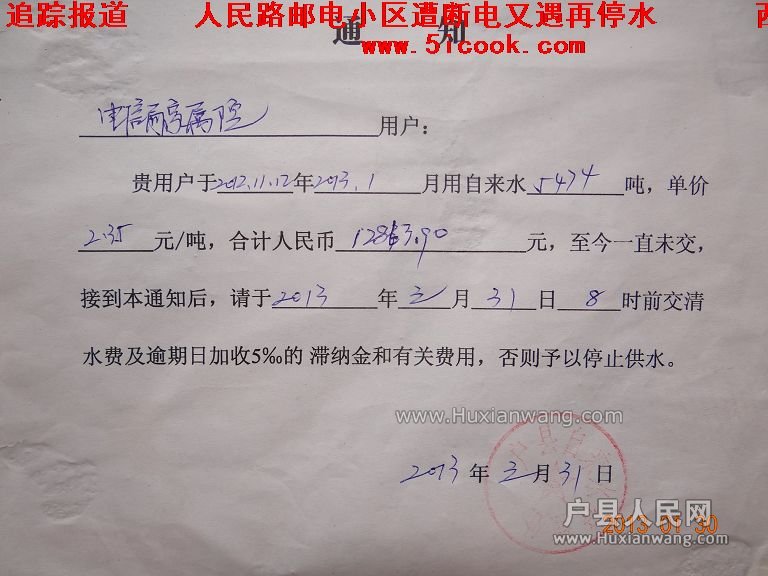 追踪报道 人民路邮电小区遭断电又遇再停水 西
通 知
www.51cook.com
电信局家属院用户：
贵用户于2012.11.12年2013.1月用自来水5474吨，单价
2.35元/吨，合计人民币12863.90元，至今一直未交，
接到本通知后，请于2013年三月31日8时前交清
水费及逾期日加收5‰的 滞纳金和有关费用，否则予以停止供水。
www.Huxianwang.com
户县自
2013年三月31日
2013 01 30
户县人民网
www.Huxianwang.com